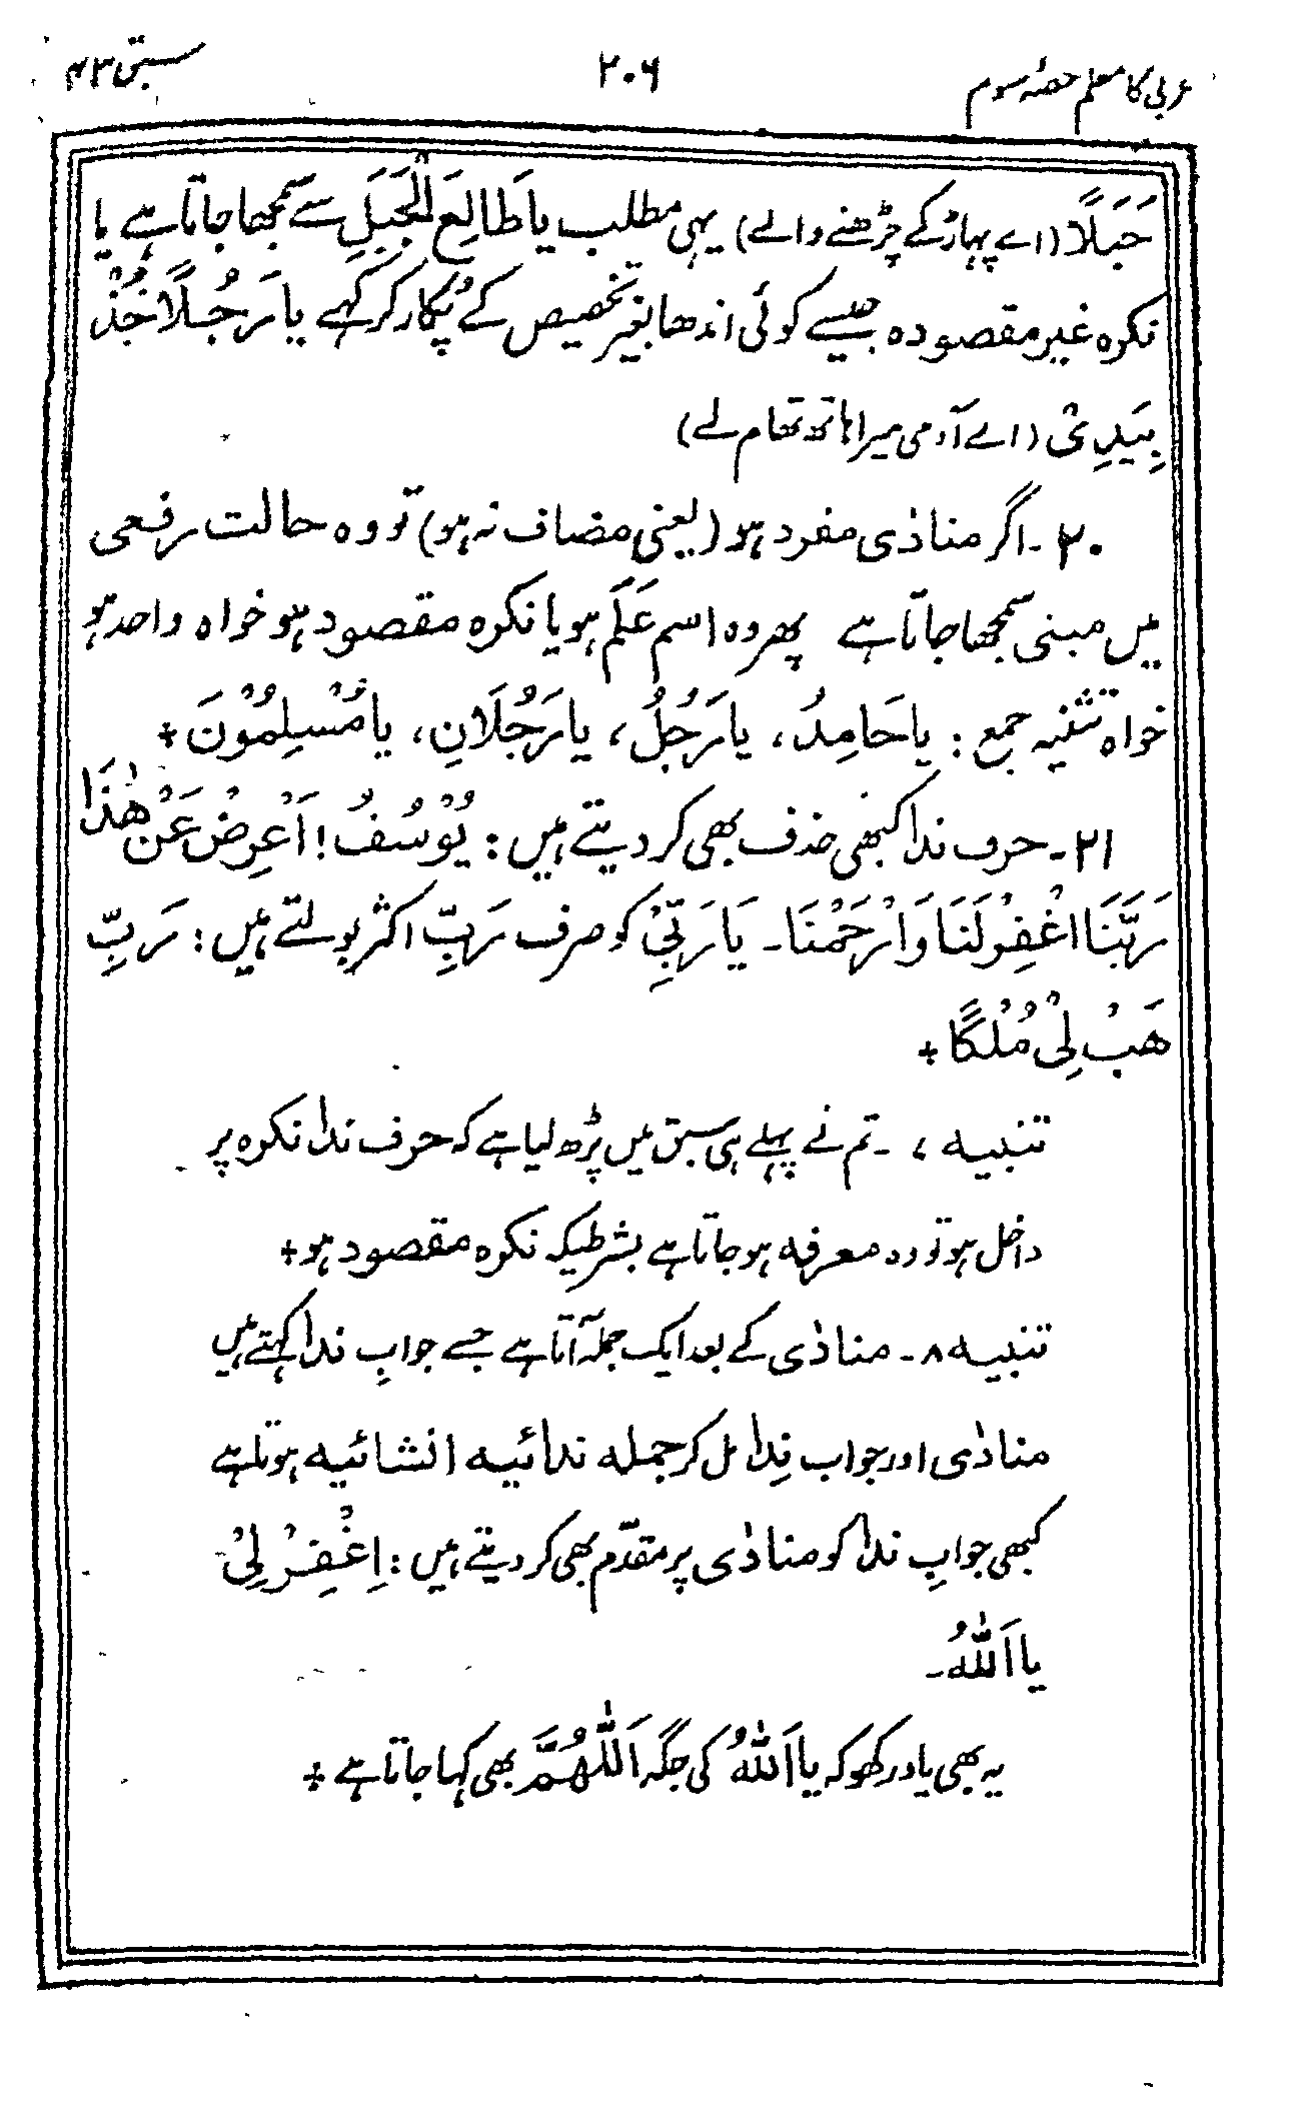 عربی کا معلم حصّہ سوم
۲۰۶
سبق ۴۳
جَبَلًا (اے پہاڑ کے چڑھنے والے) یہی مطلب یا طَالِعَ الْجَبَلِ سے سمجھا جاتا ہے یا
نکرہ غیر مقصودہ جیسے کوئی اندھا بغیر تخصیص کے پُکار کر کہے یا رَجُلًا خُذْ
بِيَدِىْ (اے آدمی میرا ہاتھ تھام لے)
۲۰۔ اگر منادٰی مفرد ہو (یعنی مضاف نہ ہو) تو وہ حالت رفعی
میں مبنی سمجھا جاتا ہے پھر وہ اسم عَلَم ہو یا نکرہ مقصود ہو خواہ واحد ہو
خواہ تثنیہ جمع : یا حَامِدُ، یا رَجُلُ، یا رَجُلَانِ، یا مُسْلِمُوْنَ +
۲۱۔ حرف ندا کبھی حذف بھی کر دیتے ہیں : يُوْسُفُ! اَعْرِضْ عَنْ هٰذَا
رَبَّنَا اغْفِرْ لَنَا وَارْحَمْنَا۔ يَا رَبِّىْ کو صرف رَبِّ اکثر بولتے ہیں : رَبِّ
هَبْ لِىْ مُلْكًا +
تنبیہ ۷ ۔ تم نے پہلے ہی سبق میں پڑھ لیا ہے کہ حرف ندا نکرہ پر
داخل ہو تو وہ معرفہ ہو جاتا ہے بشرطیکہ نکرہ مقصود ہو +
تنبیہ ۸۔ منادٰی کے بعد ایک جملہ آتا ہے جسے جوابِ ندا کہتے ہیں
منادٰی اور جواب نِدا مل کر جملہ ندائیہ انشائیہ ہوتا ہے
کبھی جوابِ ندا کو منادٰی پر مقدّم بھی کر دیتے ہیں : اِغْفِرْ لِىْ
یا اَللّٰهُ۔
یہ بھی یاد رکھو کہ یا اَللّٰهُ کی جگہ اَللّٰهُمَّ بھی کہا جاتا ہے +